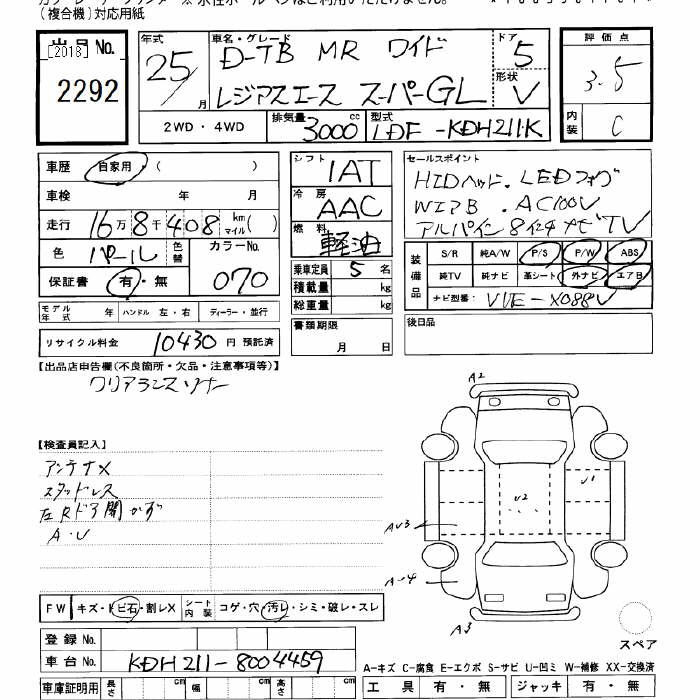 (複合機)対応用紙
出品No.
[2018]
2292
年式
25/
月
車名・グレード
D-TB MR ワイド
レジアスエース スーパーGL
ドア
5
形状
V
評価点
3.5
内装
C
2WD・4WD
排気量
3000
cc
型式
LDF-KDH211K
車歴
自家用
( )
車検
年
月
走行
16万8千408
km
マイル
( )
色
パール
色替
カラーNo.
070
保証書
有・無
モデル年式
年
ハンドル
左・右
ディーラー・並行
リサイクル料金
10430
円 預託済
シフト
IAT
冷房
AAC
燃料
軽油
乗車定員
5
名
積載量
kg
総重量
kg
書類期限
月
日
セールスポイント
HIDヘッド. LEDフォグ
WエアB. AC100V
アルパイン8インチナビTV
装備品
S/R
純A/W
P/S
P/W
ABS
純TV
純ナビ
革シート
外ナビ
エアB
ナビ型番:
VIE-X088V
後日品
【出品店申告欄(不良箇所・欠品・注意事項等)】
クリアランスソナー
【検査員記入】
アンテナX
スタッドレス
左Rドア開かず
A・U
A2
U2
U1
AU3
A-4
A3
スペア
FW
キズ・ト
ビ石
・割レX
シート内装
コゲ・穴・汚レ・シミ・破レ・スレ
登録No.
車台No.
KDH211-8004459
車庫証明用
長さ
cm
幅
cm
高さ
cm
A-キズ C-腐食 E-エクボ S-サビ U-凹ミ W-補修 XX-交換済
工具
有・無
ジャッキ
有・無